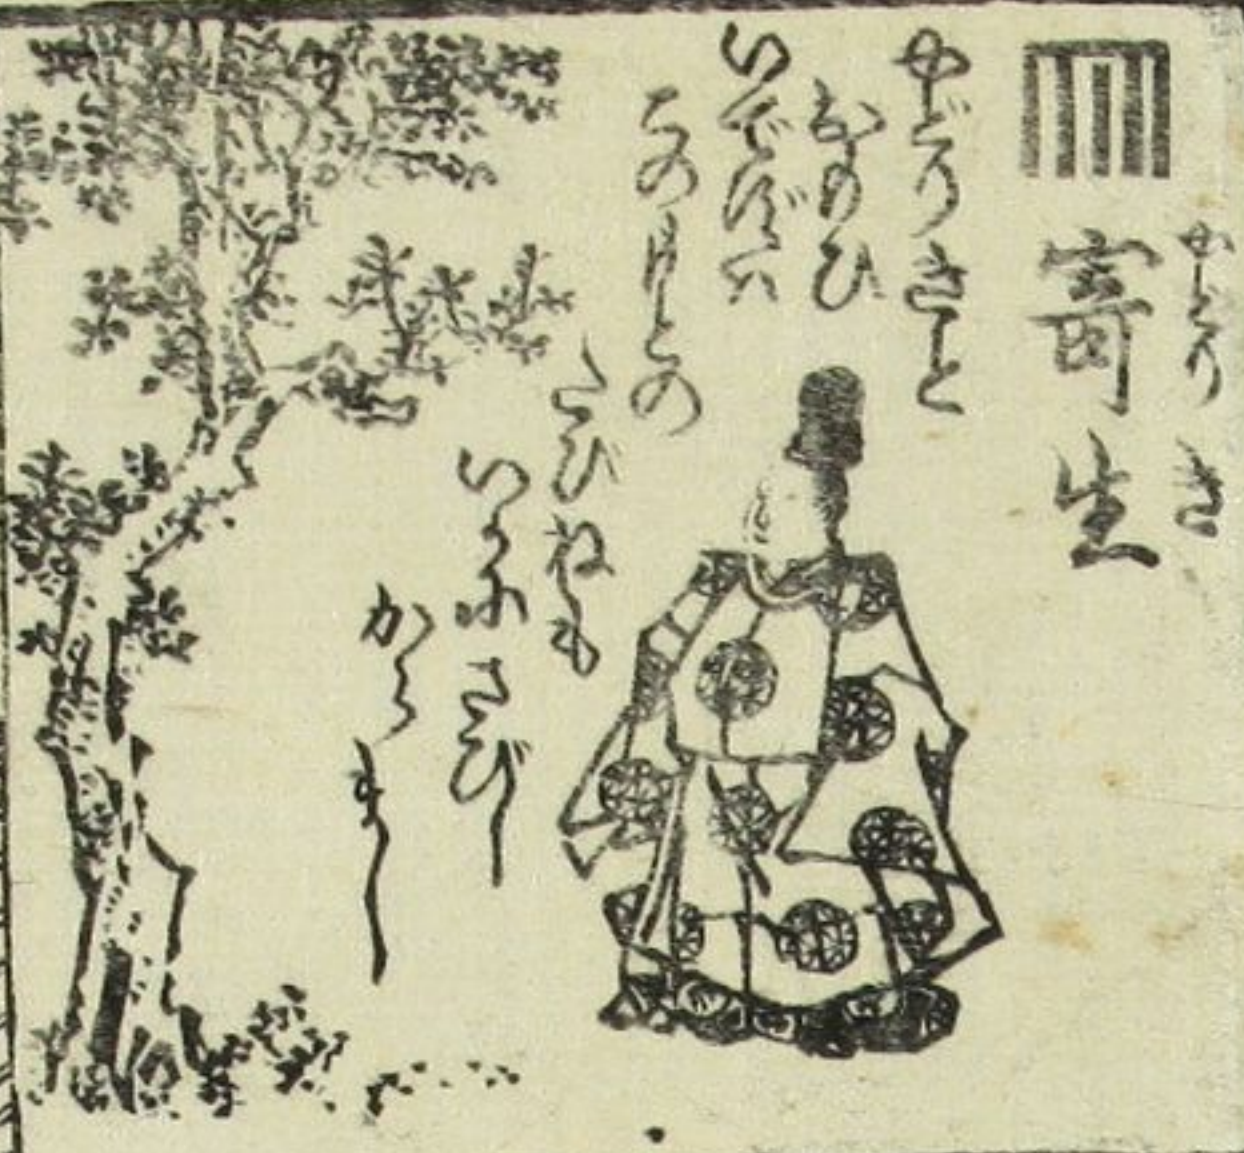 やどりき
寄生
やどりきと
おもひ
いでずは
このもとの
たびねも
いかにさび
しからまし